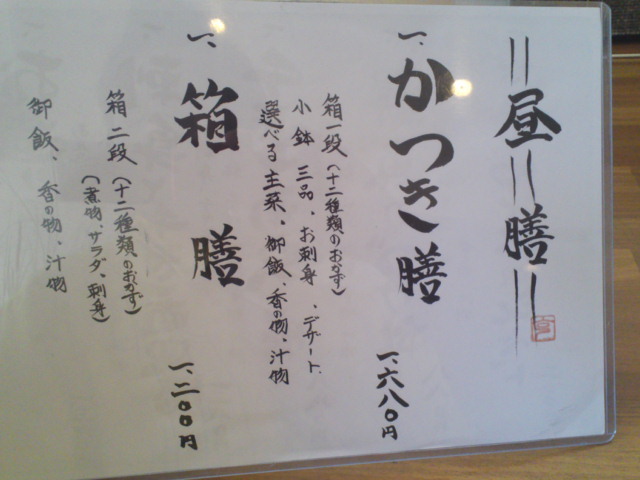 昼膳
一、かつき膳
一、六八〇円
箱一段（十二種類のおかず）
小鉢 三品、お刺身、デザート、
選べる主菜、御飯、香の物、汁物
一、箱膳
一、二〇〇円
箱二段（十二種類のおかず）
（煮物、サラダ、刺身）
御飯、香の物、汁物